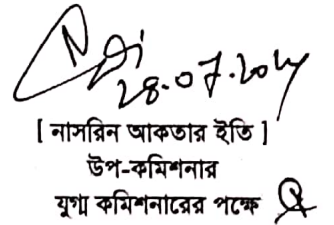 28-07-2024
[ নাসরিন আকতার ইতি ]
উপ-কমিশনার
যুগ্ম কমিশনারের পক্ষে